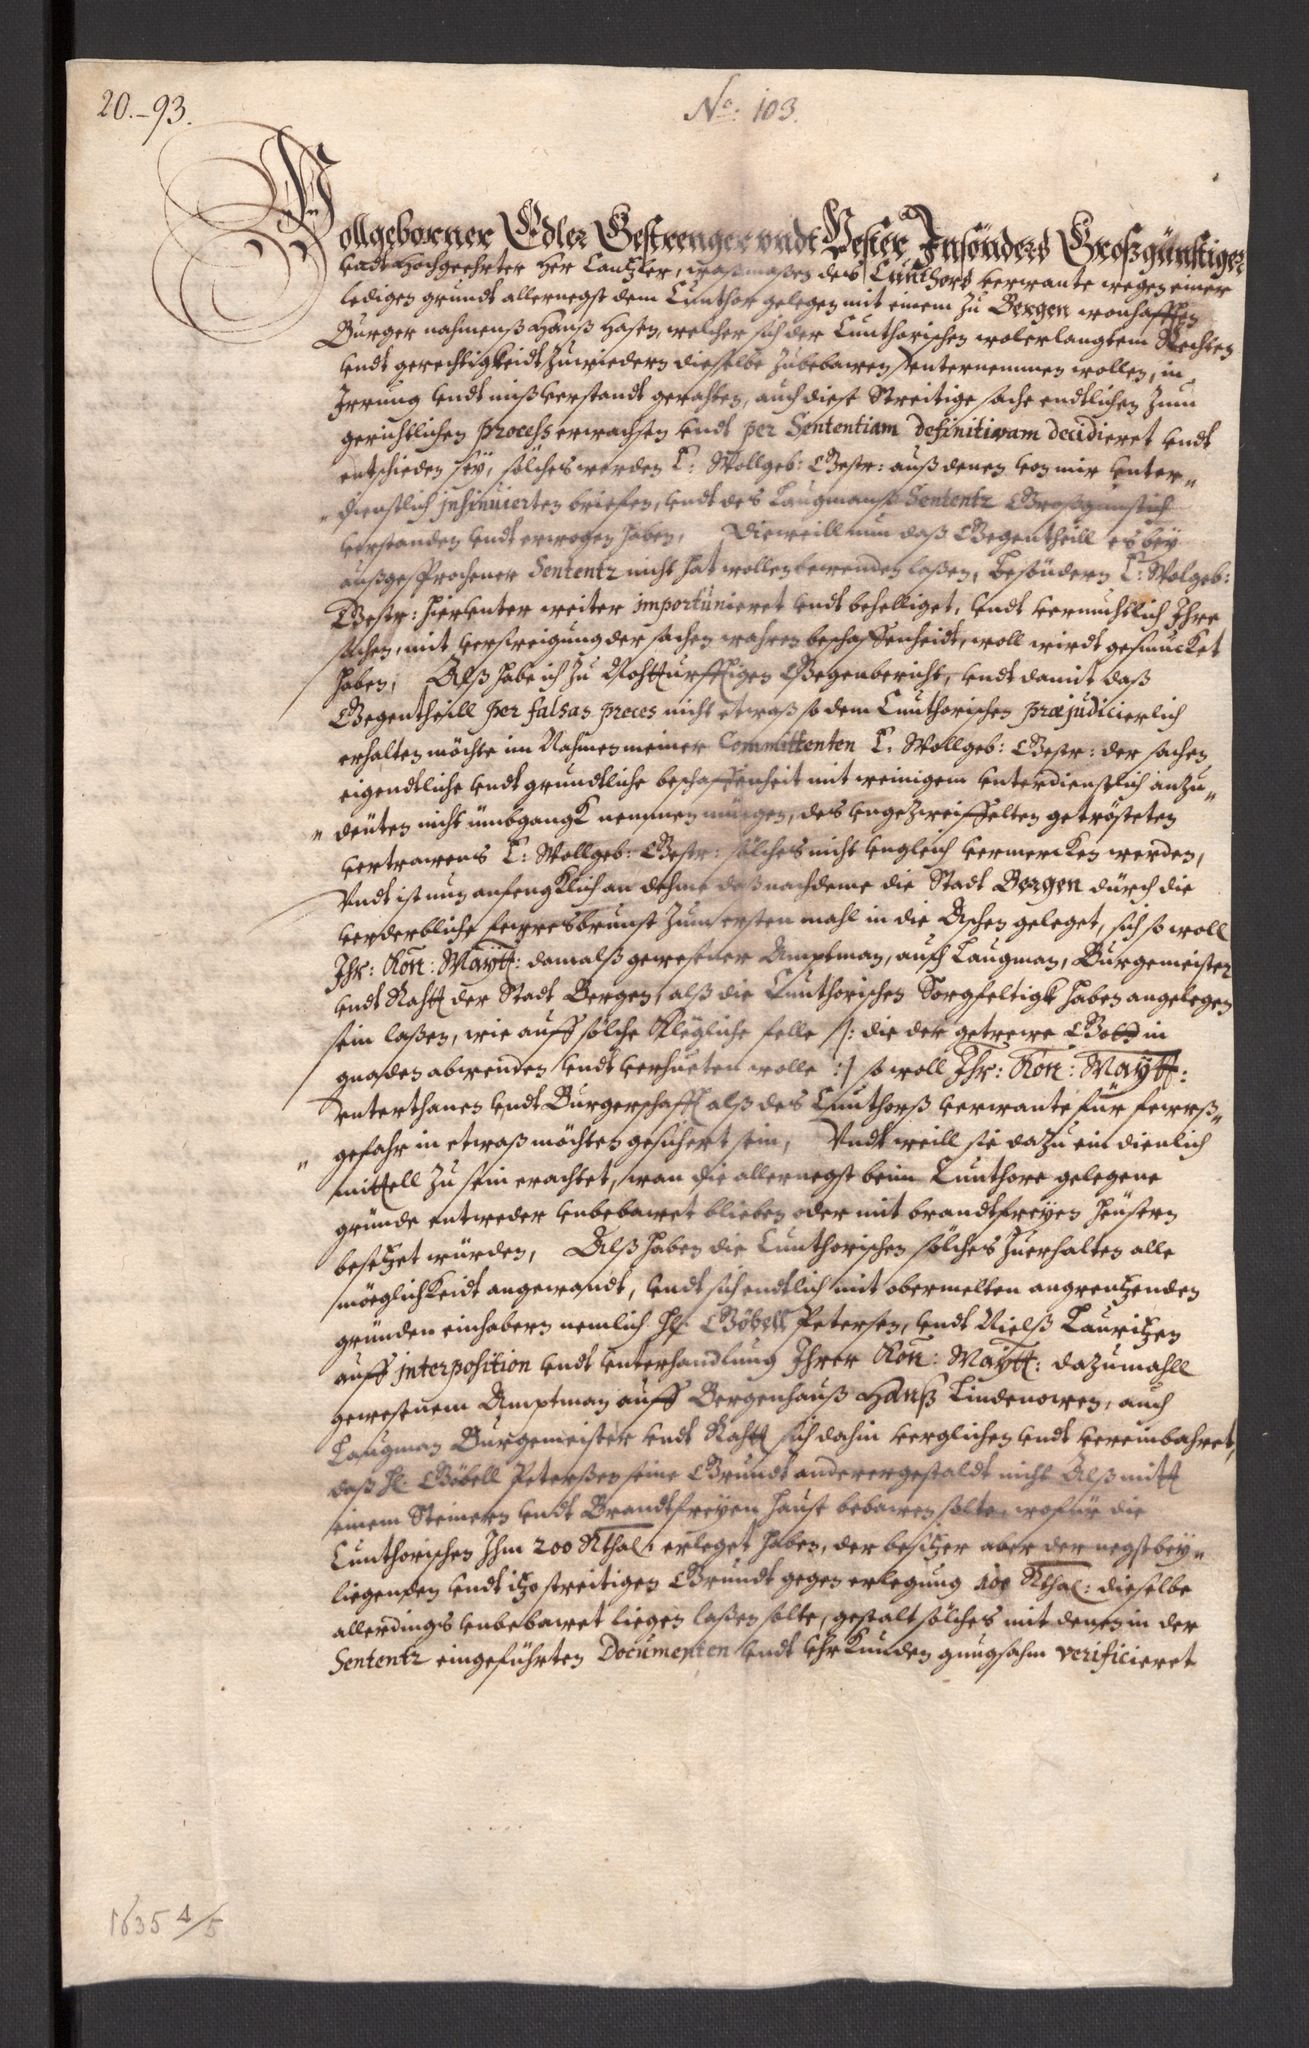 20.-93.
No: 103.
Wollgeborner Edler Gestrenger undt Vester Jnsonders Großgünstiger
undt Hochgeehrter Her Cantzler, waßmaßen des Cunthors verwante wegen einer
ledigen grundt allernegst dem Cunthor gelegen mit einem zu Bergen wonhafften
Burger nahmenß Hanß Hasen, welcher sich der Cunthorischen wolerlangtem Rechten
undt gerechtigkeidt zuwiedern dieselbe zubebawen unternemmen wollen, in
Irrung undt mißverstandt gerahten, auch diese Streitige sache endtlichen zum
gerichtlichen process erwachsen undt per Sententiam definitivam decidieret undt
entschieden sey, sölches werden E: Wollgeb: Gestr: auß denen von mir unter„
„dienstlich insinuierten briefen, undt des Laugmanß Sententz Großgunstich
verstanden undt erwogen haben, Dieweill nun daß Gegentheill es bey
außgesprochener Sententz nicht hat wollen bewenden laßen, besondern E: Wolgeb:
Gestr: hierunter weiter importunieret undt behelliget, undt vermuhtlich Ihre
sachen, mit verschweigung der sachen wahren beschaffenheidt, woll wirdt geschmucket
haben, Alß habe ich zu Nohtturfftigen Gegenbericht, undt damit daß
Gegentheill per falsas preces nicht etwaß so dem Cunthorischen præjudicierlich
erhalten möchte im Nahmen meiner Committenten E: Wollgeb: Gestr: der sachen
eigendtliche undt grundtliche beschaffenheit mit weinigem unterdienstlich anzu„
„deuten nicht ümbgangk nemmen mügen, des ungezweiffelten getrösteten
vertrawens E: Wollgeb: Gestr: sölches nicht ungleich vermercken werden,
Undt ist nun anfengklich an dehme daß nachdeme die Stadt Bergen dürch die
verderbliche fewresbrunst zum ersten mahl in die Aschen geleget, sich so woll
Ihr: Kön: Maytt: damalß gewesener Amptman, auch Laugman, Burgemeister
undt Rahtt der Stadt Bergen, alß die Cunthorischen Sorgfeltigk haben angelegen
sein laßen, wie auff sölche klegliche felle /: die der getrewe Gott in
gnaden abwenden undt verhueten wolle :/ so woll Ihr: Kön: Maytt:
unterthanen undt Burgerschafft alß des Cunthorß verwante für fewrß„
„gefahr in etwaß möchten gesichert sein, Undt weill sie dazu ein dienlich
mittell zu sein erachtet, wan die allernegst beim Cunthore gelegene
gründe entweder unbebawet blieben oder mit brandtfreyen heusern
besetzet würden, Alß haben die Cunthorischen sölches zuerhalten alle
möeglichkeidt angewandt, undt sich endtlich mit obermelten angrentzenden
gründen einhabern nemlich H: Göbell Petersen, undt Nielß Lauritzen
auff interposition undt unterhandlung Ihrer Kön: Maytt: dazumahll
gewesenem Amptman auff Bergenhauß Hanß Lindenowen, auch
Laugman Burgemeister undt Rahtt sich dahin verglichen undt vereinbahret,
daß H: Göbell Peterßen seine Grundt anderergestaldt nicht Alß mitt
einem Steinern undt Brandtfreyen hause bebawen solte, wofür die
Cunthorischen Ihm 200 Rthal: erleget haben, der besitzer aber der negstbey„
liegenden undt itzo streitigen Grundt gegen erlegung 100 Rthal: dieselbe
allerdings unbebawet liegen laßen solte, gestalt sölches mit denen in der
Sententz eingeführten Documenten undt Uhrkunden gnugsahm verificieret
1635 4/5